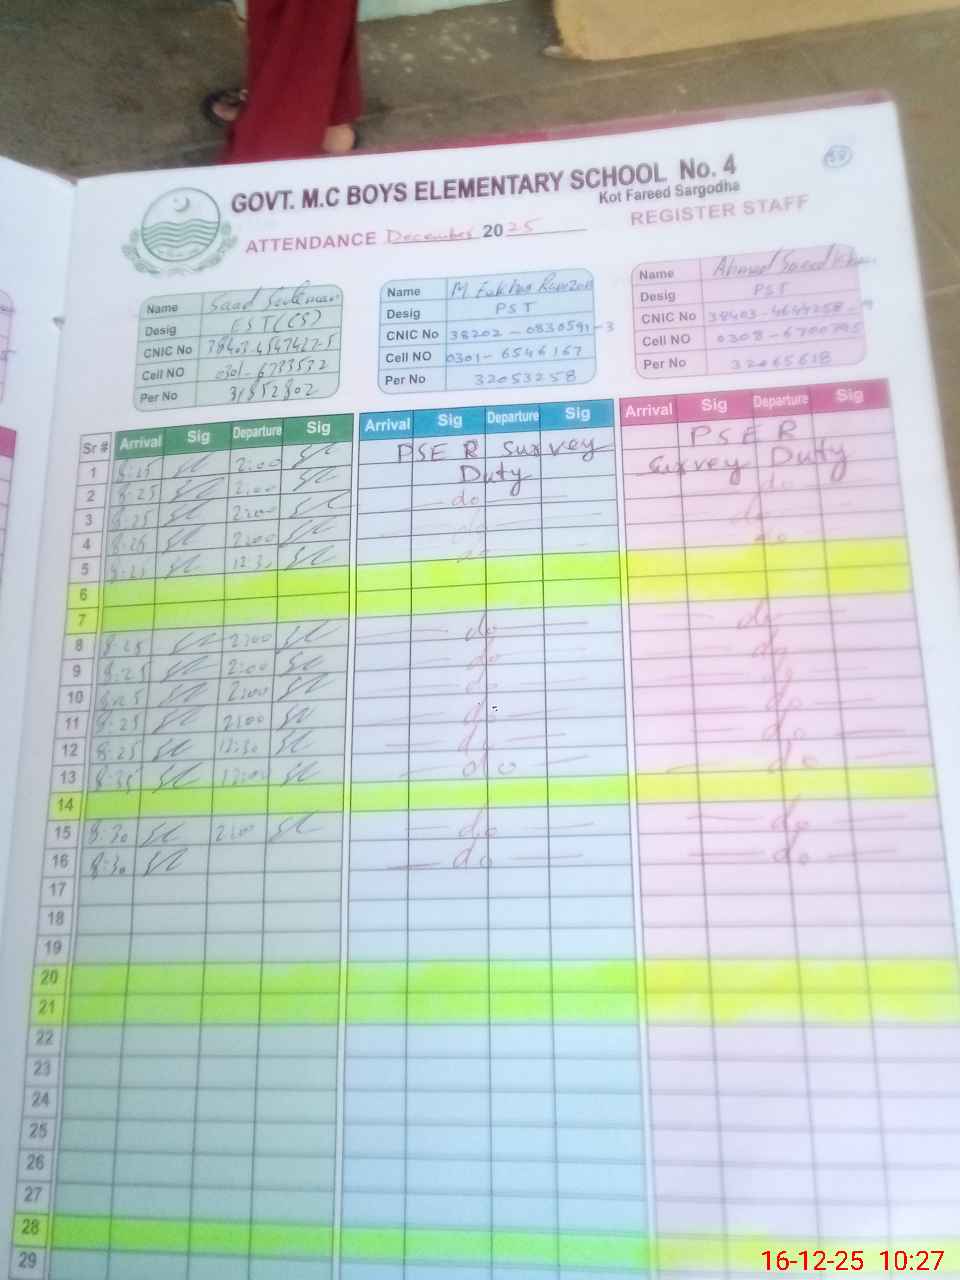 GOVT. M.C BOYS ELEMENTARY SCHOOL No. 4
Kot Fareed Sargodha
ATTENDANCE December 2025 REGISTER STAFF
Name Saad
Desig EST (CS)
CNIC No
Cell NO 0301-6783522
Per No
Name M
Desig PST
CNIC No 38202-0830591-3
Cell NO 0301-6546167
Per No 32053258
Name Ahmed Saeed Khan
Desig PST
CNIC No
Cell NO
Per No 32065618
Sr # Arrival Sig Departure Sig Arrival Sig Departure Sig Arrival Sig Departure Sig
PSER Survey PSER
1 8:25 2:00 Duty Survey Duty
2 8:25 2:00 do do
3 8:25 2:00 do do
4 8:25 2:00 do do
5 8:25 12:30 do
6
7
8 8:25 2:00 do do
9 8:25 2:00 do do
10 8:25 2:00 do do
11 8:25 2:00 do do
12 8:25 12:30 do do
13 do do
14
15 8:30 2:00 do do
16 8:30 do do
17
18
19
20
21
22
23
24
25
26
27
28
29
16-12-25 10:27